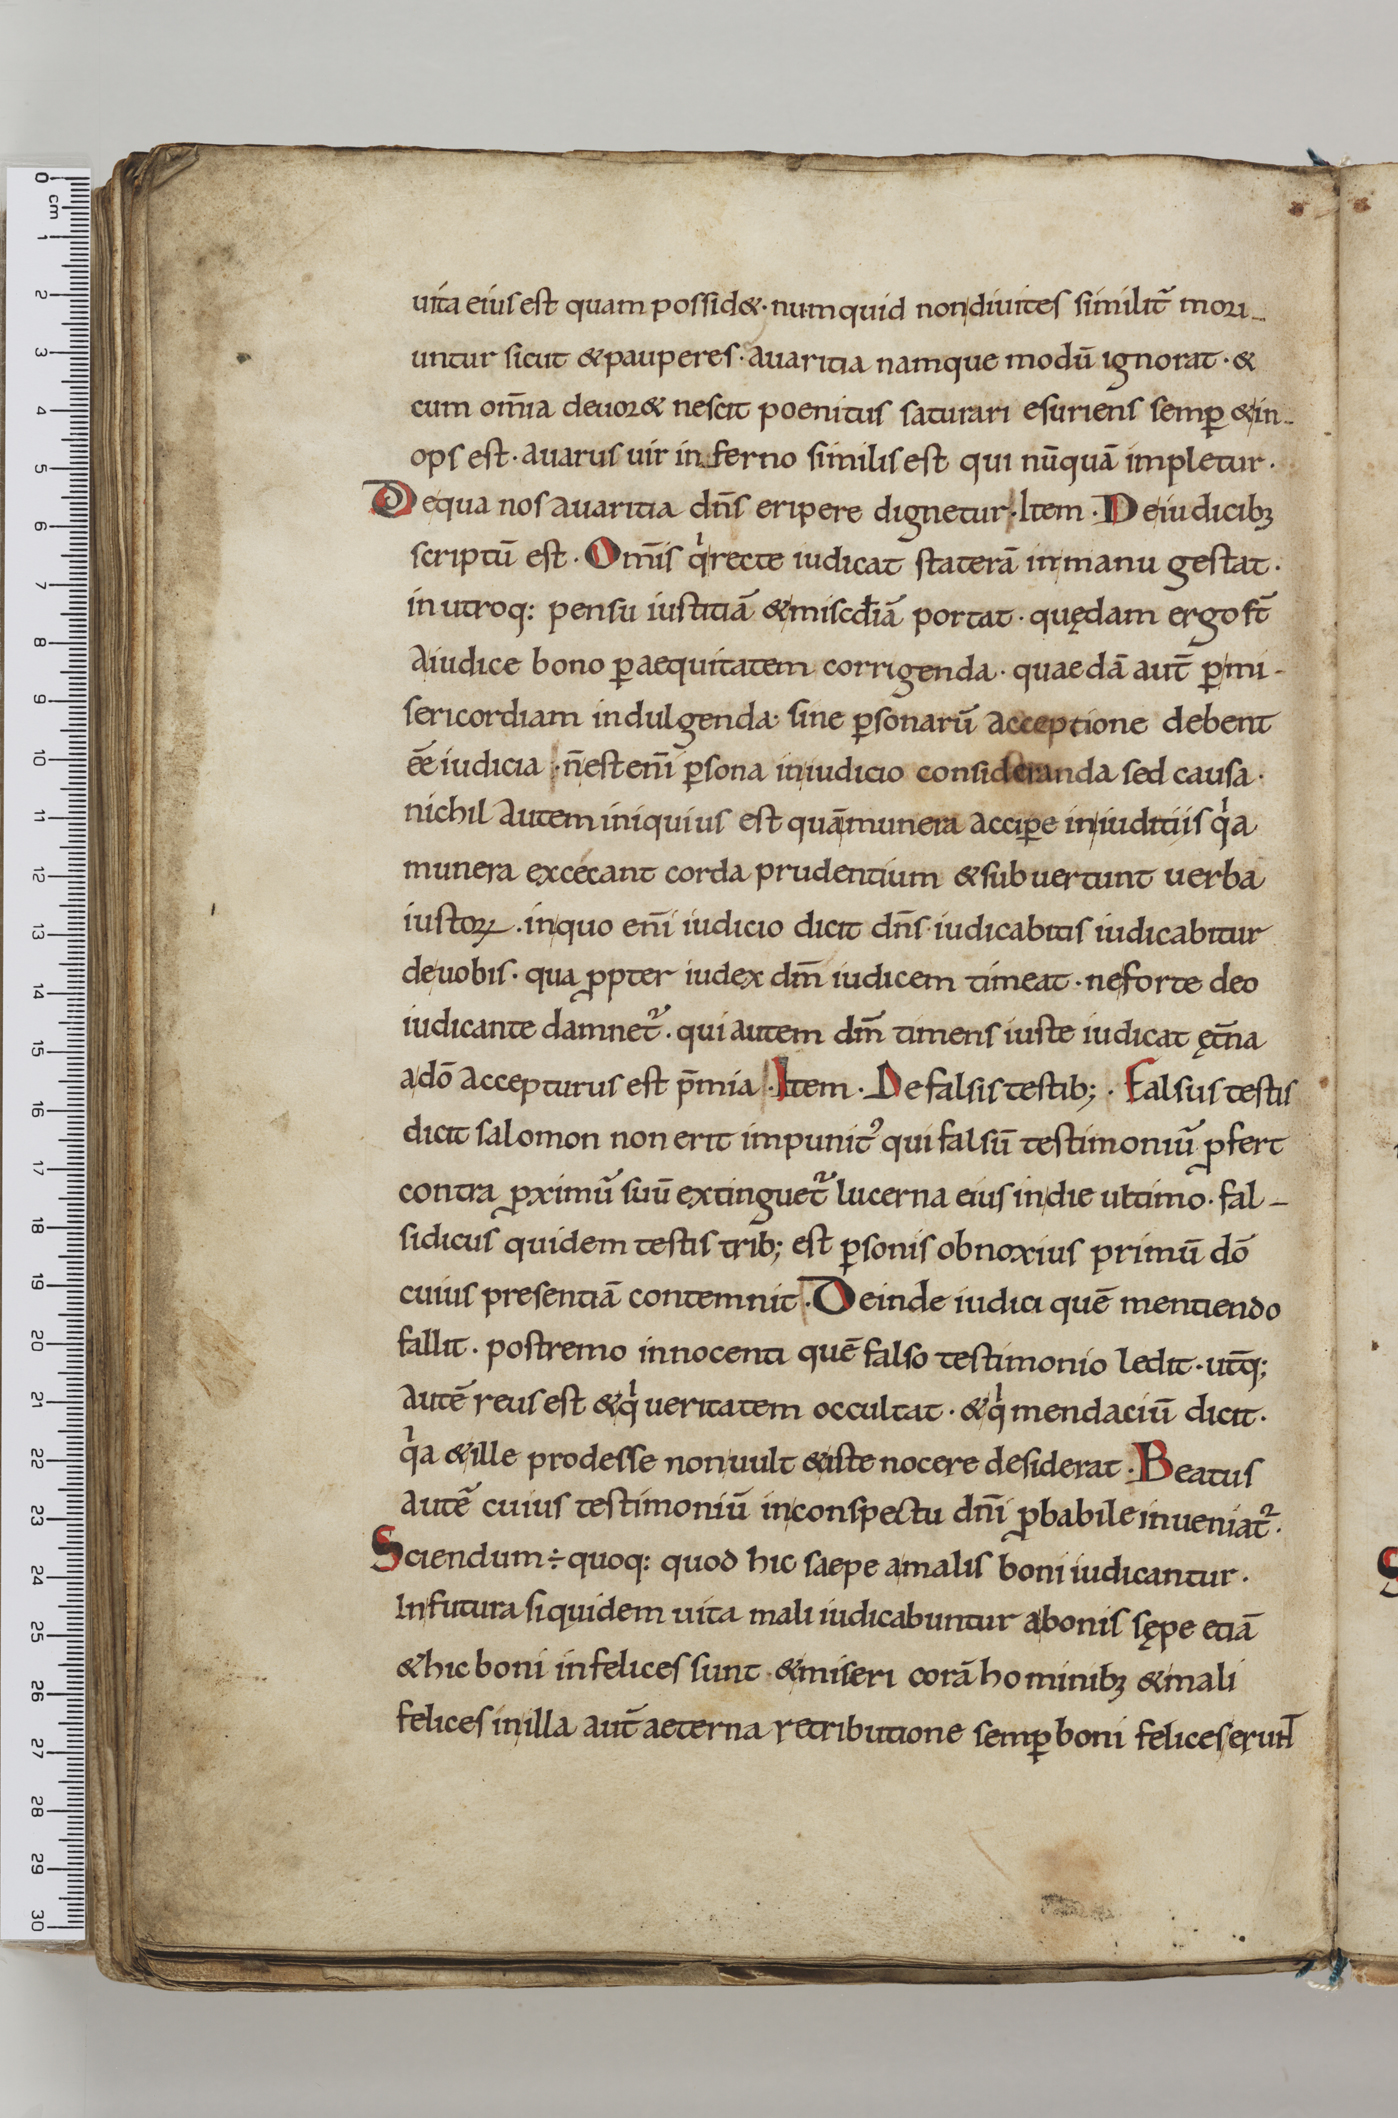 uita eius est quam possid&· numquid non diuites similit̄ mori-
untur sicut & pauperes· auaritia namque modū ignorat· &
cum om̄ia deuor& nescit poenitus saturari esuriens semꝑ & in-
ops est· auarus uir inferno similis est qui nūquā impletur·
De qua nos auaritia dn̄s eripere dignetur· Item· De iudicibꝫ
scriptū est· Om̄is qͥ recte iudicat staterā in manu gestat·
in utroq: pensu iustitiā & misc̄diā portat· quędam ergo st̄
a iudice bono ꝑ aequitatem corrigenda· quaedā aut̄ ꝑ mi-
sericordiam indulgenda· sine ꝑsonarū acceptione debent
ēē iudicia· n̄ est en̄i ꝑsona in iudicio consideranda sed causa·
nichil autem iniquius est quā munera accipe in iuditiis qͥa
munera excecant corda prudentium & subuertunt uerba
iustoꝝ· in quo en̄i iudicio dicit dn̄s· iudicabitis iudicabitur
de uobis· qua ꝓpter iudex dm̄ iudicem timeat· ne forte deo
iudicante damnet᷑· qui autem dm̄ timens iuste iudicat ęt̄na
a dō accepturus est p̄mia· Item· De falsis testib;· Falsus testis
dicit salomon non erit impunitꝰ qui falsū testimoniū ꝓfert
contra ꝓximū suū extinguet᷑ lucerna eius in die ultimo· fal-
sidicus quidem testis trib; est ꝑsonis obnoxius primū dō
cuius presentiā contemnit· Deinde iudici quē mentiendo
fallit· postremo innocenti quē falso testimonio ledit· ut̄q;
autē reus est & qͥ ueritatem occultat· & qͥ mendaciū dicit·
qͥa & ille prodesse non uult & iste nocere desiderat· Beatus
autē cuius testimoniū in conspectu dn̄i ꝓbabile inueniat᷑·
Sciendum ÷ quoq: quod hic saepe a malis boni iudicantur·
In futura siquidem uita mali iudicabuntur a bonis sępe etiā
& hic boni infelices sunt & miseri corā hominibꝫ & mali
felices in illa aut̄ aeterna retributione semꝑ boni felices erunt
0
cm
1
2
3
4
5
6
7
8
9
10
11
12
13
14
15
16
17
18
19
20
21
22
23
24
25
26
27
28
29
30